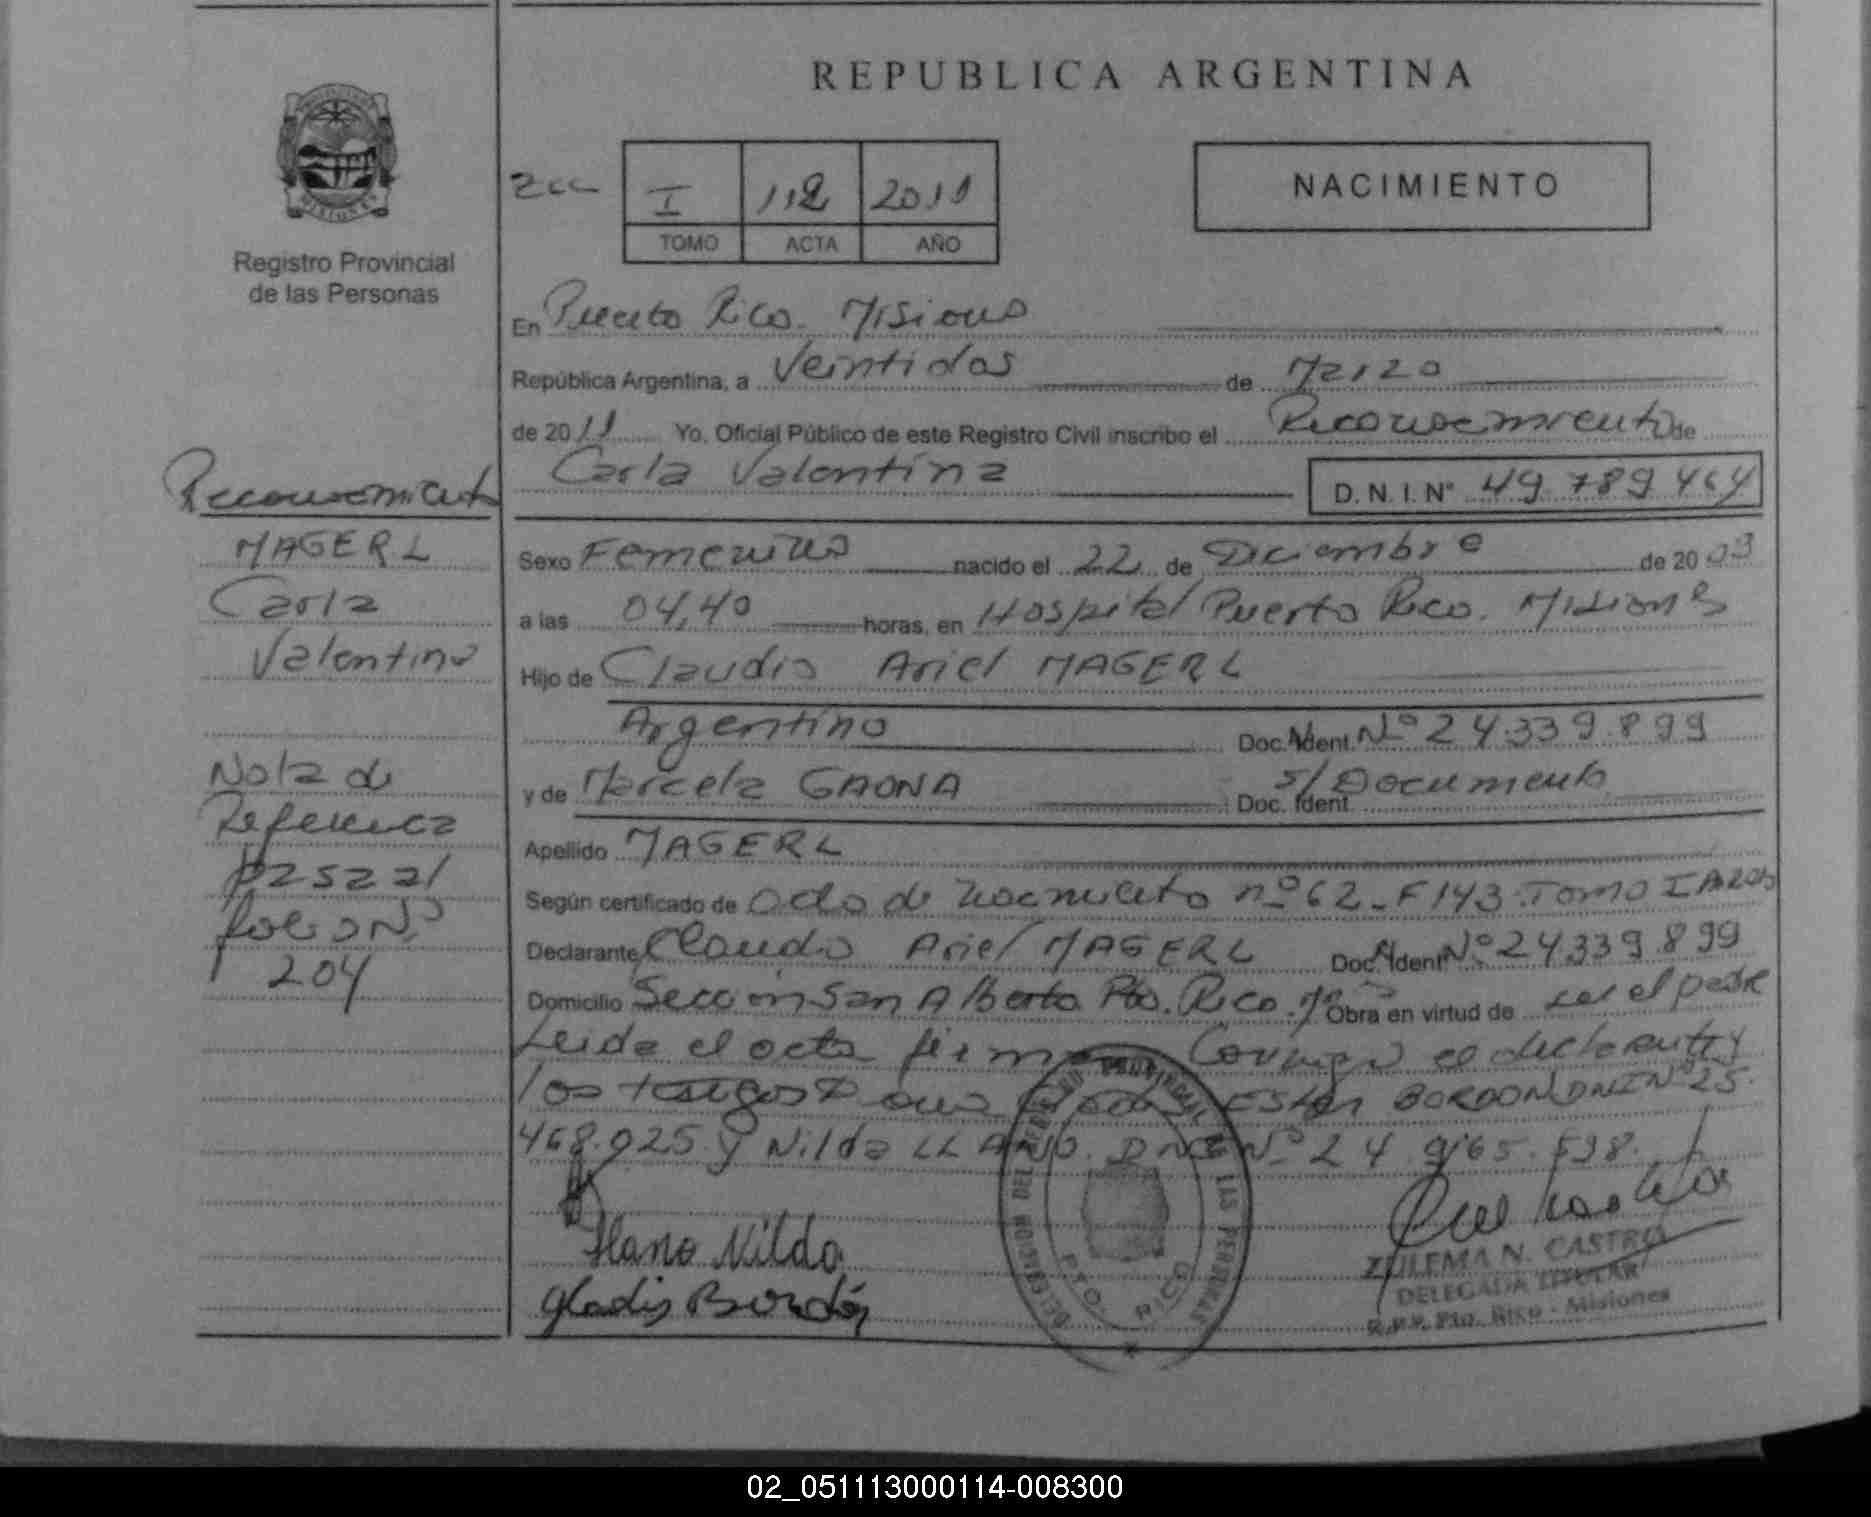 REPUBLICA ARGENTINA
NACIMIENTO
I 112 2011
TOMO ACTA AÑO
MISIONES
Registro Provincial
de las Personas
En Puerto Rico. Misiones
República Argentina, a Veintidos de Marzo
de 2011 Yo, Oficial Público de este Registro Civil inscribo el Reconocimiento de
Carla Valentina D.N.I. N° 49.789.464
Sexo Femenino nacido el 22 de Diciembre de 2009
a las 04,40 horas, en Hospital Puerto Rico. Misiones
Hijo de Claudio Ariel MAGERL
Argentino Doc. Ident. Nº 24.339.899
y de Marcela GAONA Doc. Ident. s/Documento
Apellido MAGERL
Según certificado de acta de nacimiento nº 62 - F 143 - Tomo I
Declarante Claudio Ariel MAGERL Doc. Ident Nº 24.339.899
Domicilio Sección San Alberto Pto. Rico. Obra en virtud de ser el padre
Leida el acta firman conmigo el declarante y
los testigos Ester BORDON DNI Nº 25.
468.025 y Nilda LLANO. DNI Nº 24.965.598.
Reconocimiento
MAGERL
Carla
Valentina
Nota de
Referencia
pasa al
folio Nº
204
Llano Nilda
Gladis Bordón
DELEGACION DEL REGISTRO PROVINCIAL DE LAS PERSONAS
PTO. RICO
ZULEMA N. CASTRO
DELEGADA TITULAR
R.P.P. Pto. Rico - Misiones
02_051113000114-008300